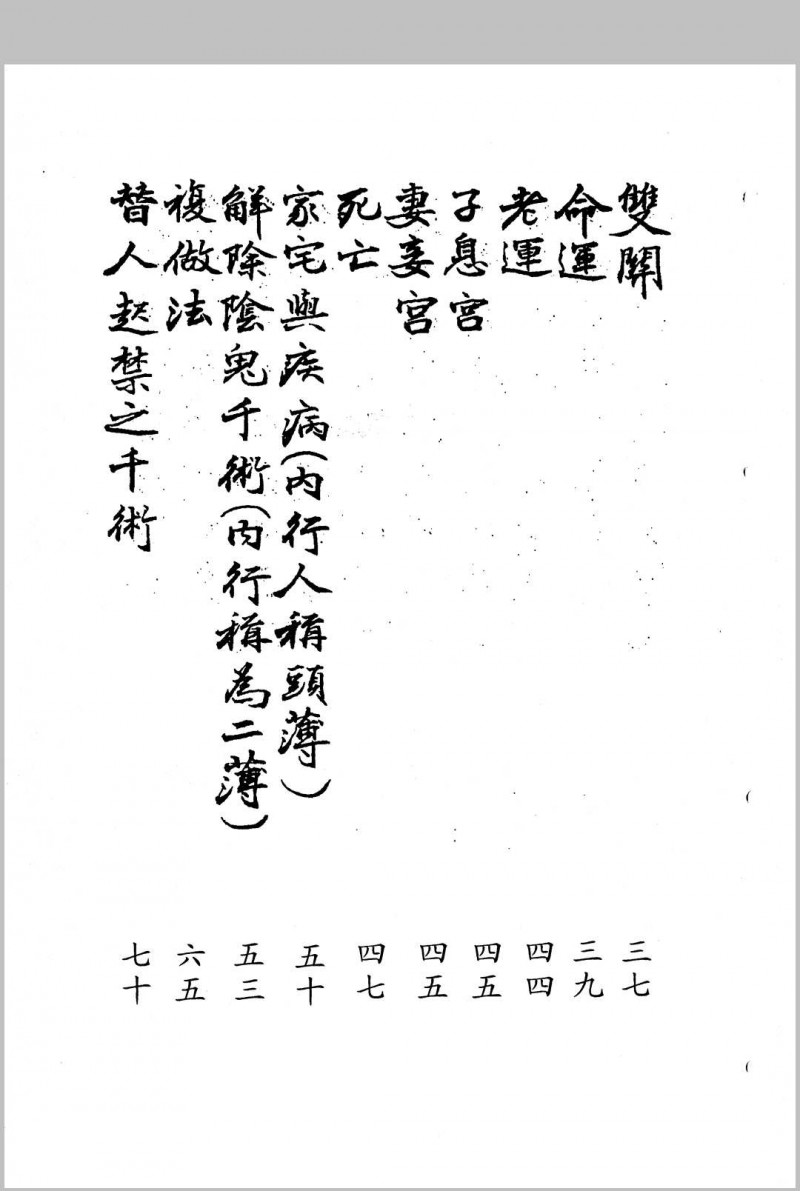 雙關 三七
命運 三九
老運 四四
子息宮 四五
妻妾宮 四五
死亡 四七
家宅與疾病(內行人稱頭薄) 五十
解除陰鬼千術(內行稱為二薄) 五三
複做法 六五
替人起禁之千術 七十